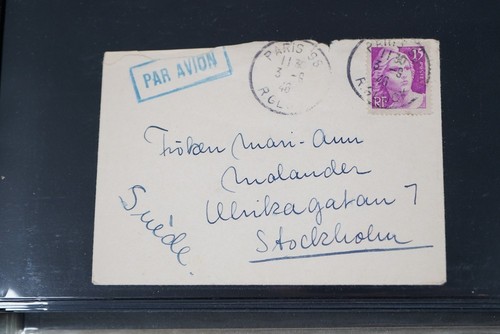 PAR AVION
PARIS 95
11 30
3 - 9
46
15
RF
Fröken Mari-Ann
Molander
Ulrikagatan 7
Stockholm
Suède.